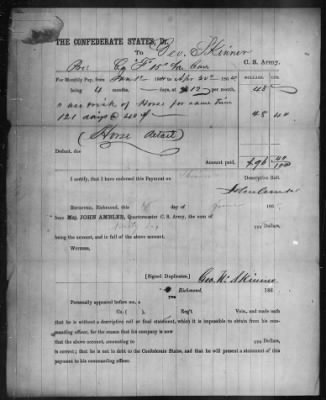 THE CONFEDERATE STATES, Dr.
To Geo. Skinner
Co F 15th Va Cav C. S. Army.
For Monthly Pay, from 186 to DOLLARS. CTS.
being 4 months, days, at $12 per month, 48
" use & risk of Horse for same time
121 days @ 40¢ 48 40
(Horse Detail)
Deduct, for due
Amount paid, $96 40/100
I certify, that I have endorsed this Payment on Descriptive Roll.
RECEIVED, Richmond, this day of 186
from MAJ. JOHN AMBLER, Quartermaster C. S. Army, the sum of
Dollars,
being the amount, and in full of the above account.
WITNESS,
[Signed Duplicates.] Geo. W. Skinner
Richmond, 186
Personally appeared before me, a
Co. ( ), Reg't Vols, and made oath
that he is without a descriptive roll or final statement, which it is impossible to obtain from his com-
manding officer, for the reason that his company is now
that the above account, amounting to Dollars,
is correct; that he is not in debt to the Confederate States, and that he will present a statement of this
payment to his commanding officer.